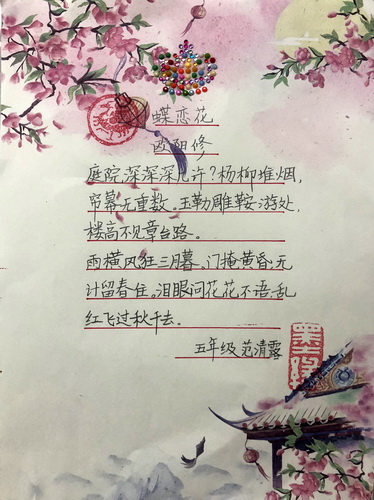 蝶恋花
欧阳修
庭院深深深几许？杨柳堆烟，
帘幕无重数。玉勒雕鞍游处，
楼高不见章台路。
雨横风狂三月暮，门掩黄昏，无
计留春住。泪眼问花花不语，乱
红飞过秋千去。
五年级 范清露
墨缘